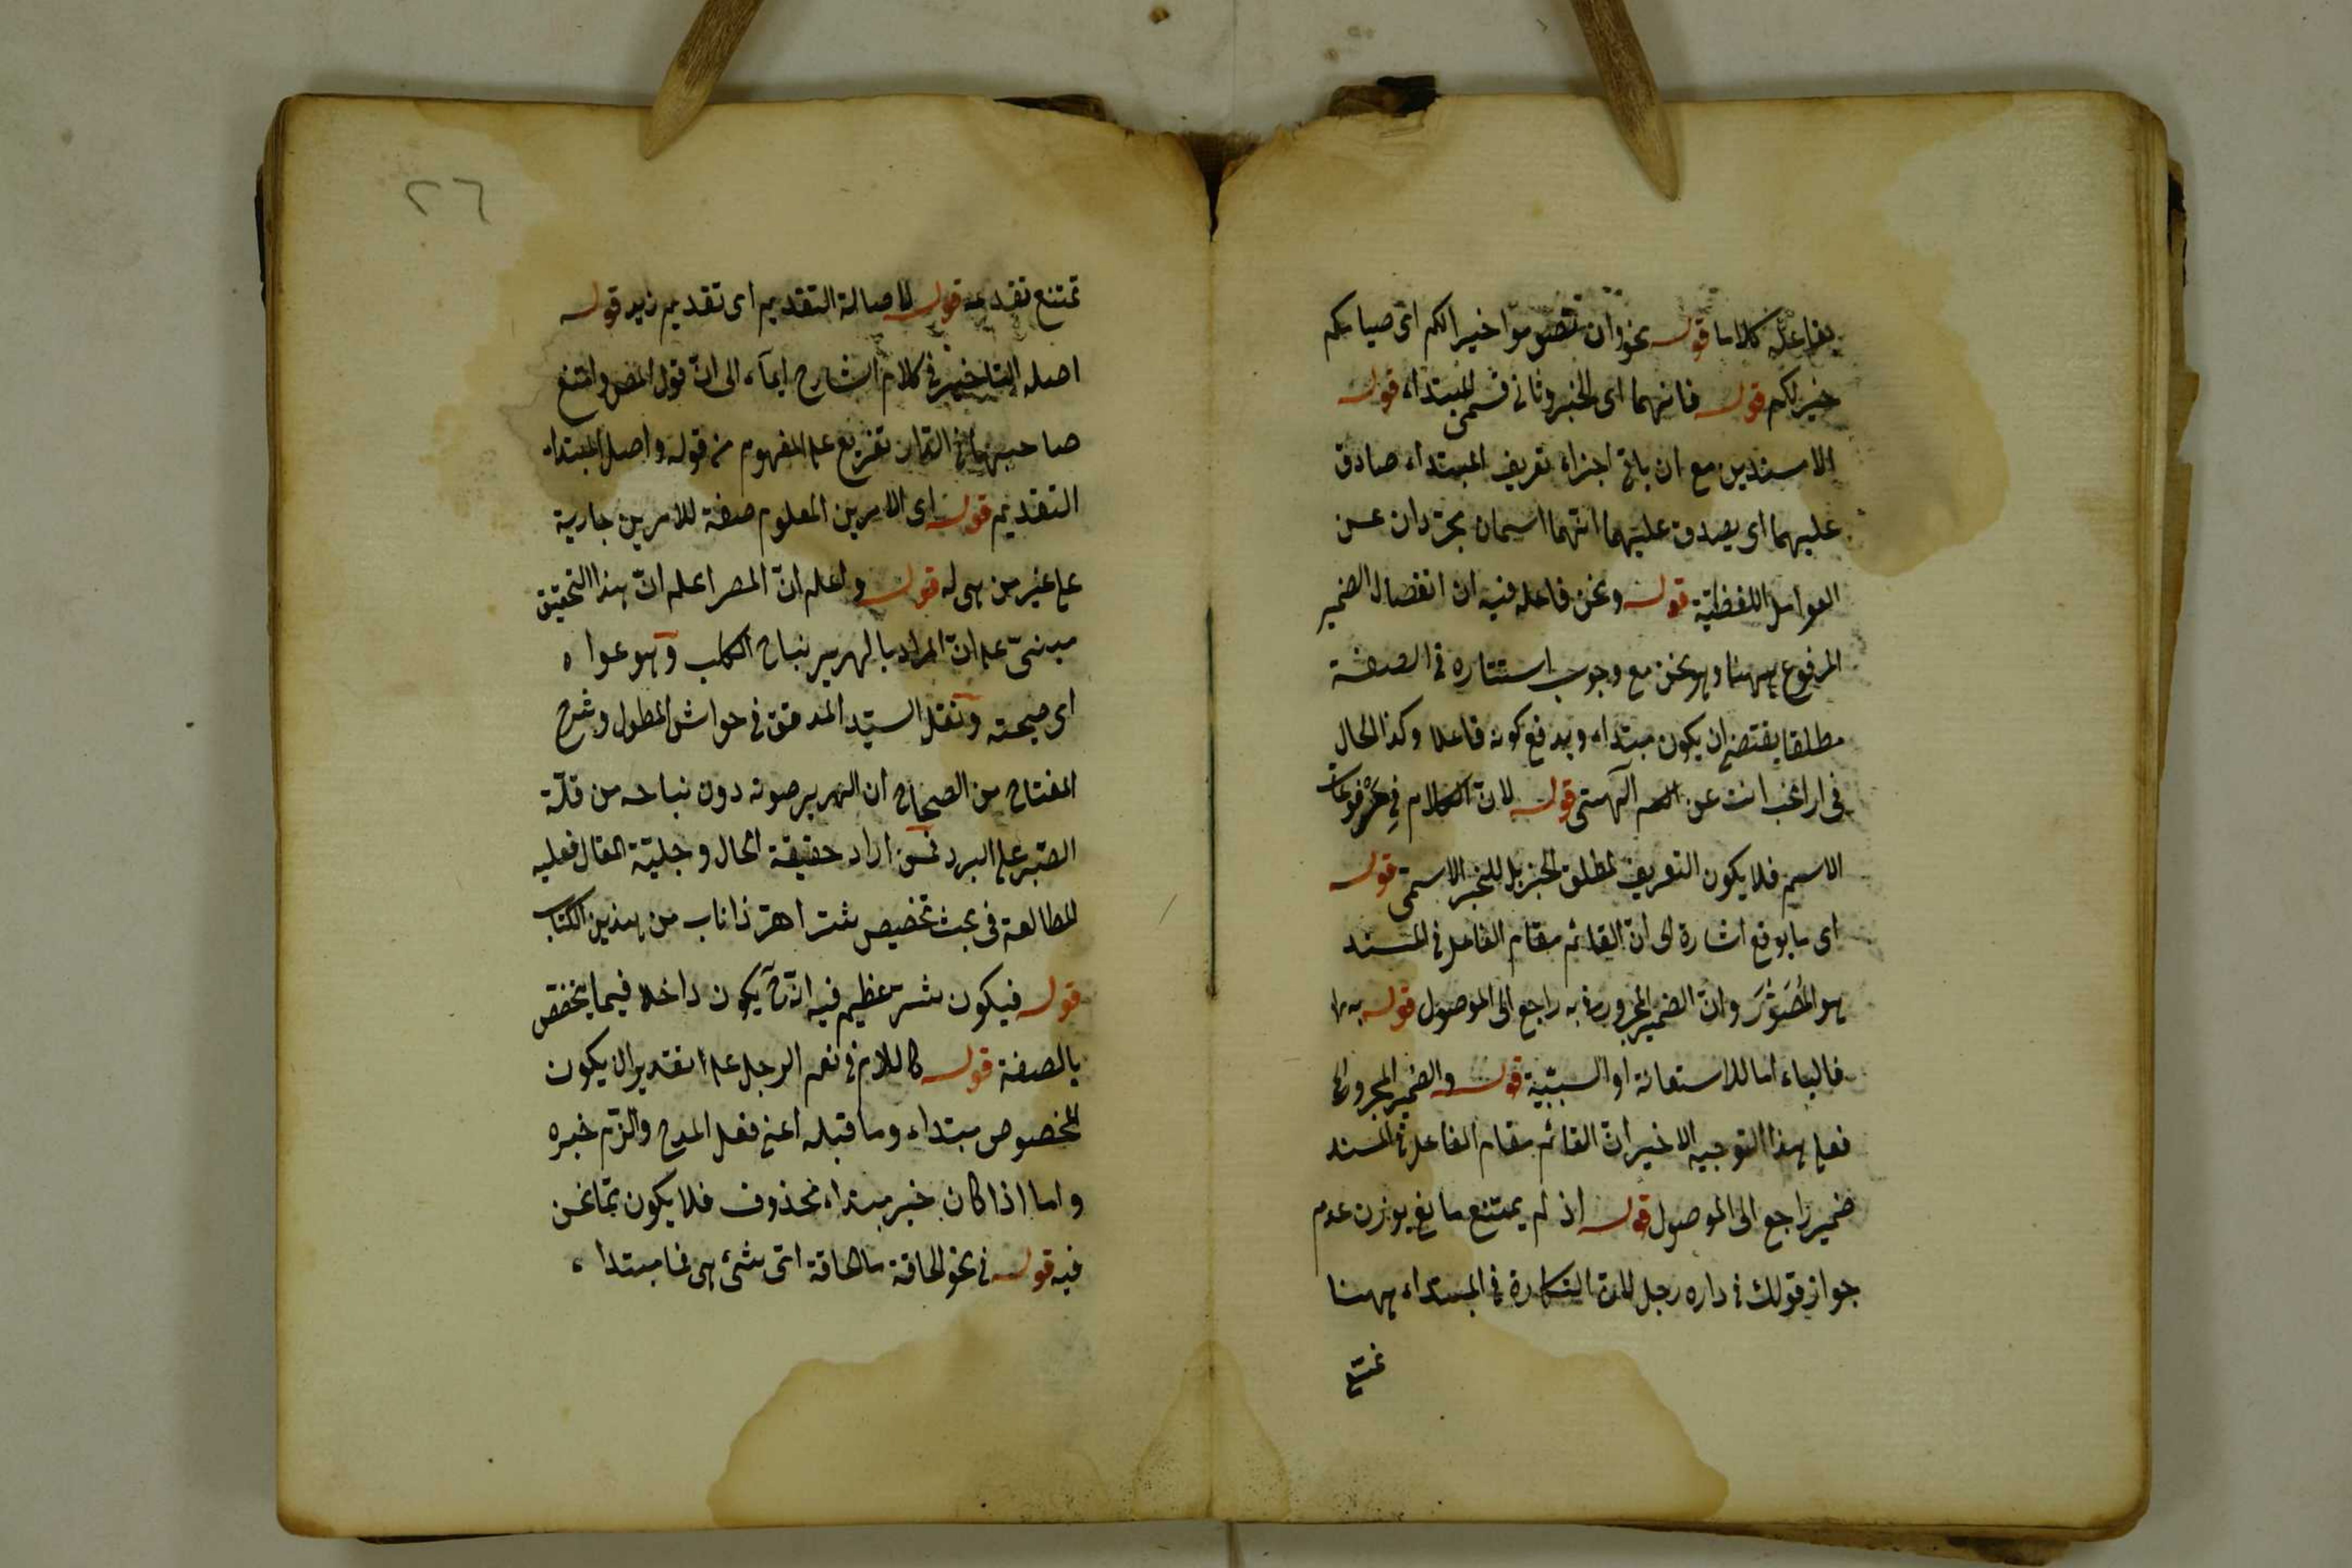 بفاعله كلاما قوله نحو وان تصوموا خير لكم اى صيامكم
خير لكم قوله فانهما اى الخبر وثانى قسمى المبتداء قوله
الا مسندين مع ان باقى اجزاء تعريف المبتداء صادق
عليهما اى يصدق عليهما انهما اسمان مجردان عن
العوامل اللفظية قوله ونحن فاعله فيه ان انفصال الضمير
المرفوع ههنا وهو نحن مع وجوب استتاره فى الصفة
مطلقا يقتضى ان يكون مبتداء ويدفع كونه فاعلا وكذا الحال
فى اراغب انت عن آلهتى قوله لان الكلام فى مرفوعات
الاسم فلا يكون التعريف لمطلق الخبر بل للخبر الاسمى قوله
اى ما يوقع اشارة الى ان القائم مقام الفاعل فى المسند
هو المصدر وان الضمير المجرور فى به راجع الى الموصول قوله به
فالباء اما للاستعانة او السببية قوله والضمير المجرور
فعلى هذا التوجيه الاخير ان القائم مقام الفاعل فى المسند
ضمير راجع الى الموصول قوله اذ لم يمتنع مانع يوزن عدم
جواز قولك فى داره رجل لان النكارة فى المبتداء ههنا
تمتنع
٢٦
تمتنع تقدمه قوله لاصالة التقديم اى تقديم زيد قوله
اصله التاخير فى كلام الشارح ايماء الى ان قول المص وامتنع
صاحبها فى الدار تفريع على المفهوم من قوله واصل المبتداء
التقديم قوله اى الامرين المعلوم صفة للامرين جارية
على غير من هى له قوله واعلم ان المصر اعلم ان هذا التحقيق
مبنى على ان المراد بالهرير نباح الكلب وهو عواه
اى صيحته ونقل السيد المدقق فى حواشى المطول وشرح
المفتاح من الصحاح ان الهرير صوته دون نباحه من قلة
الصبر على البرد فمن اراد حقيقة الحال وجلية المقال فعليه
المطالعة فى بحث تخصيص شر اهر ذا ناب من هذين الكتاب
قوله فيكون شر عظيم فيه انه ح يكون داخلا فيما يخصص
بالصفة قوله كاللام فى نعم الرجل على تقدير ان يكون
المخصوص مبتداء وما قبله اعنى فعل المدح والذم خبره
واما اذا كان خبر مبتداء محذوف فلا يكون مما نحن
فيه قوله فى نحو الحاقة ما الحاقة اى شىء هى فما مبتداء